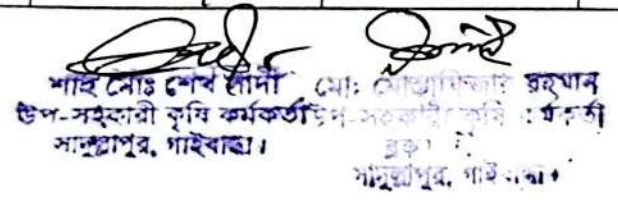 শাহ মোঃ শেখ সাদী
উপ-সহকারী কৃষি কর্মকর্তা
সাদুল্লাপুর, গাইবান্ধা।
মো: মোস্তাফিজার রহমান
উপ-সহকারী কৃষি কর্মকর্তা
ব্লক
সাদুল্লাপুর, গাইবান্ধা।